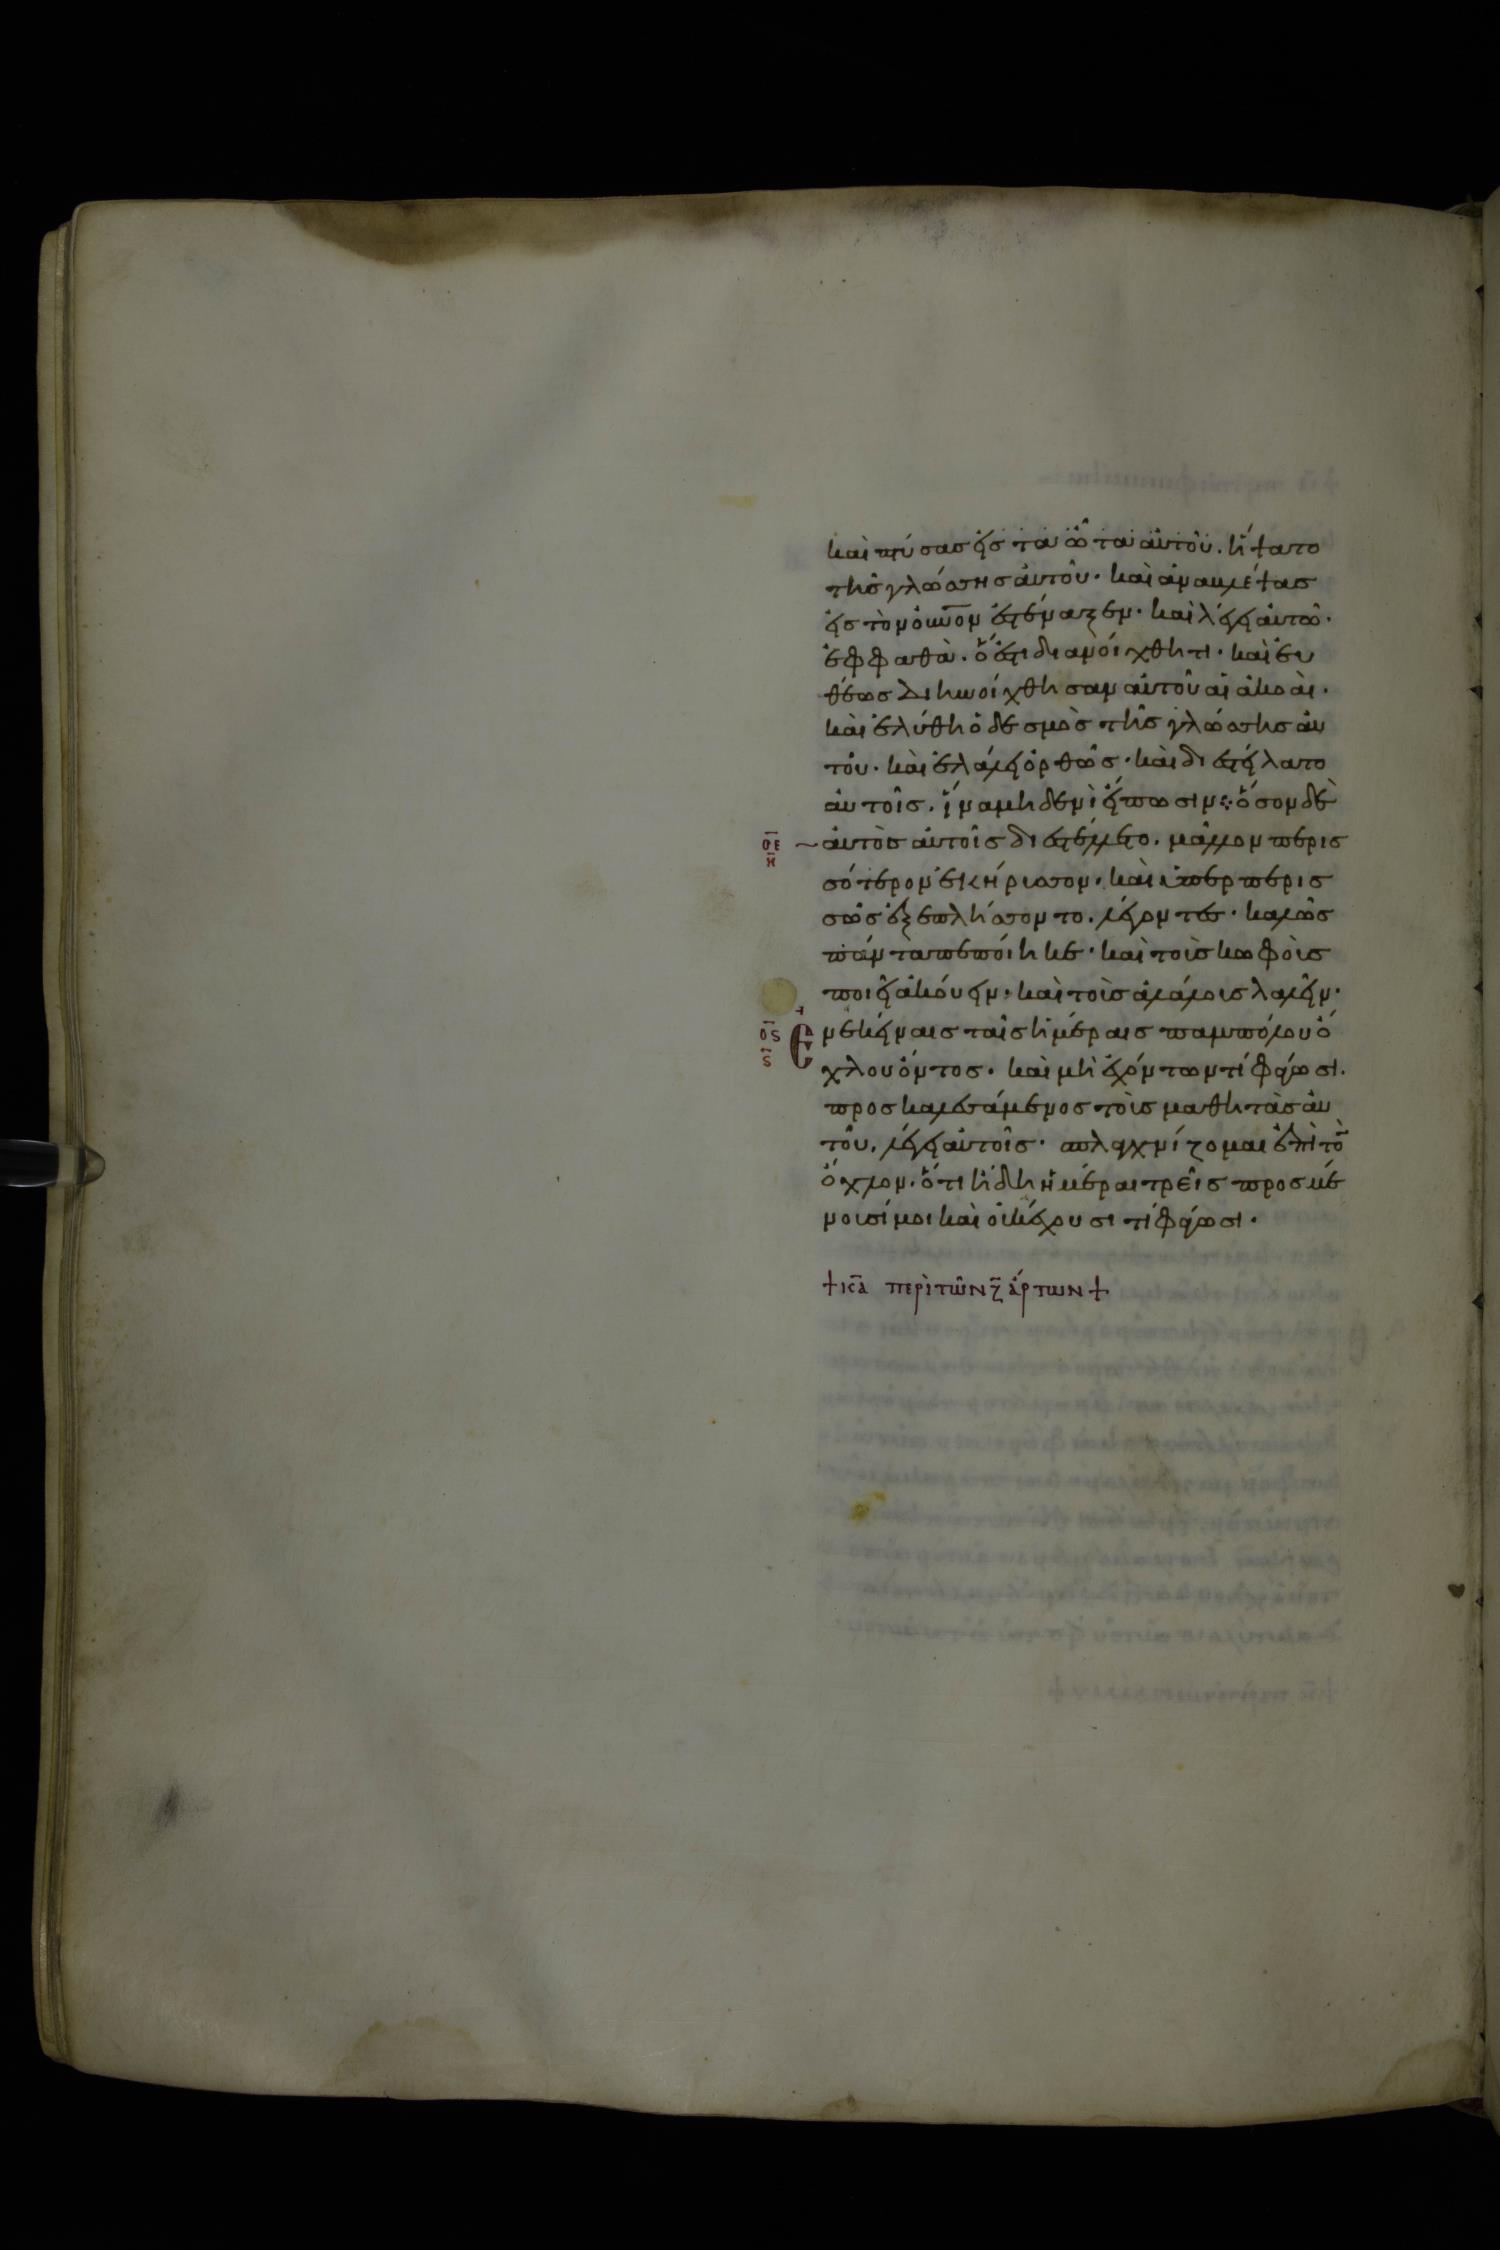 καὶ πτύσας εἰς τὰ ὦτα αὐτοῦ. ἥψατο
τῆς γλώσσης αὐτοῦ· καὶ ἀναβλέψας
εἰς τὸν οὐ̅ν̅ο̅ν ἐστέναξεν· καὶ λέγει αὐτῶ·
ἐφφαθὰ. ὅ ἐστι διανοίχθητι· καὶ εὐ
θέως διηνοίχθησαν αὐτοῦ αἱ ἀκοαὶ.
καὶ ἐλύθη ὁ δεσμὸς τῆς γλώσσης αὐ
τοῦ· καὶ ἐλάλει ὀρθῶς· καὶ διεστείλατο
αὐτοῖς. ἵνα μηδενὶ εἴπωσιν· ὅσον δὲ
ο̅ε̅ η̅ αὐτὸς αὐτοῖς διεστέλλετο. μᾶλλον περισ
σότερον ἐκήρυσσον· καὶ ὑπερπερισ
σῶς ἐξεπλήσσοντο. λέγοντες· καλῶς
πάντα πεποίηκε· καὶ τοῖς κωφοῖς
ποιεῖ ἀκούειν· καὶ τοῖς ἀλάλοις λαλεῖν·
ο̅ς̅ ς̅ Ἐν ἐκείναις ταῖς ἡμέραις παμπόλου ὄ
χλου ὄντος. καὶ μὴ ἐχόντων τί φάγωσι.
προσκαλεσάμενος τοὶς μαθητὰς αὐ
τοῦ. λέγει αὐτοῖς· σπλαγχνίζομαι ἐπὶ τὸν
ὄχλον. ὅτι ἤδη ἡμέραι τρεῖς προσμέ
νουσί μοι καὶ οὐκ ἔχουσι τί φάγωσι·
+ κ̅α̅ περὶ τῶν ζ̅ ἄρτων +